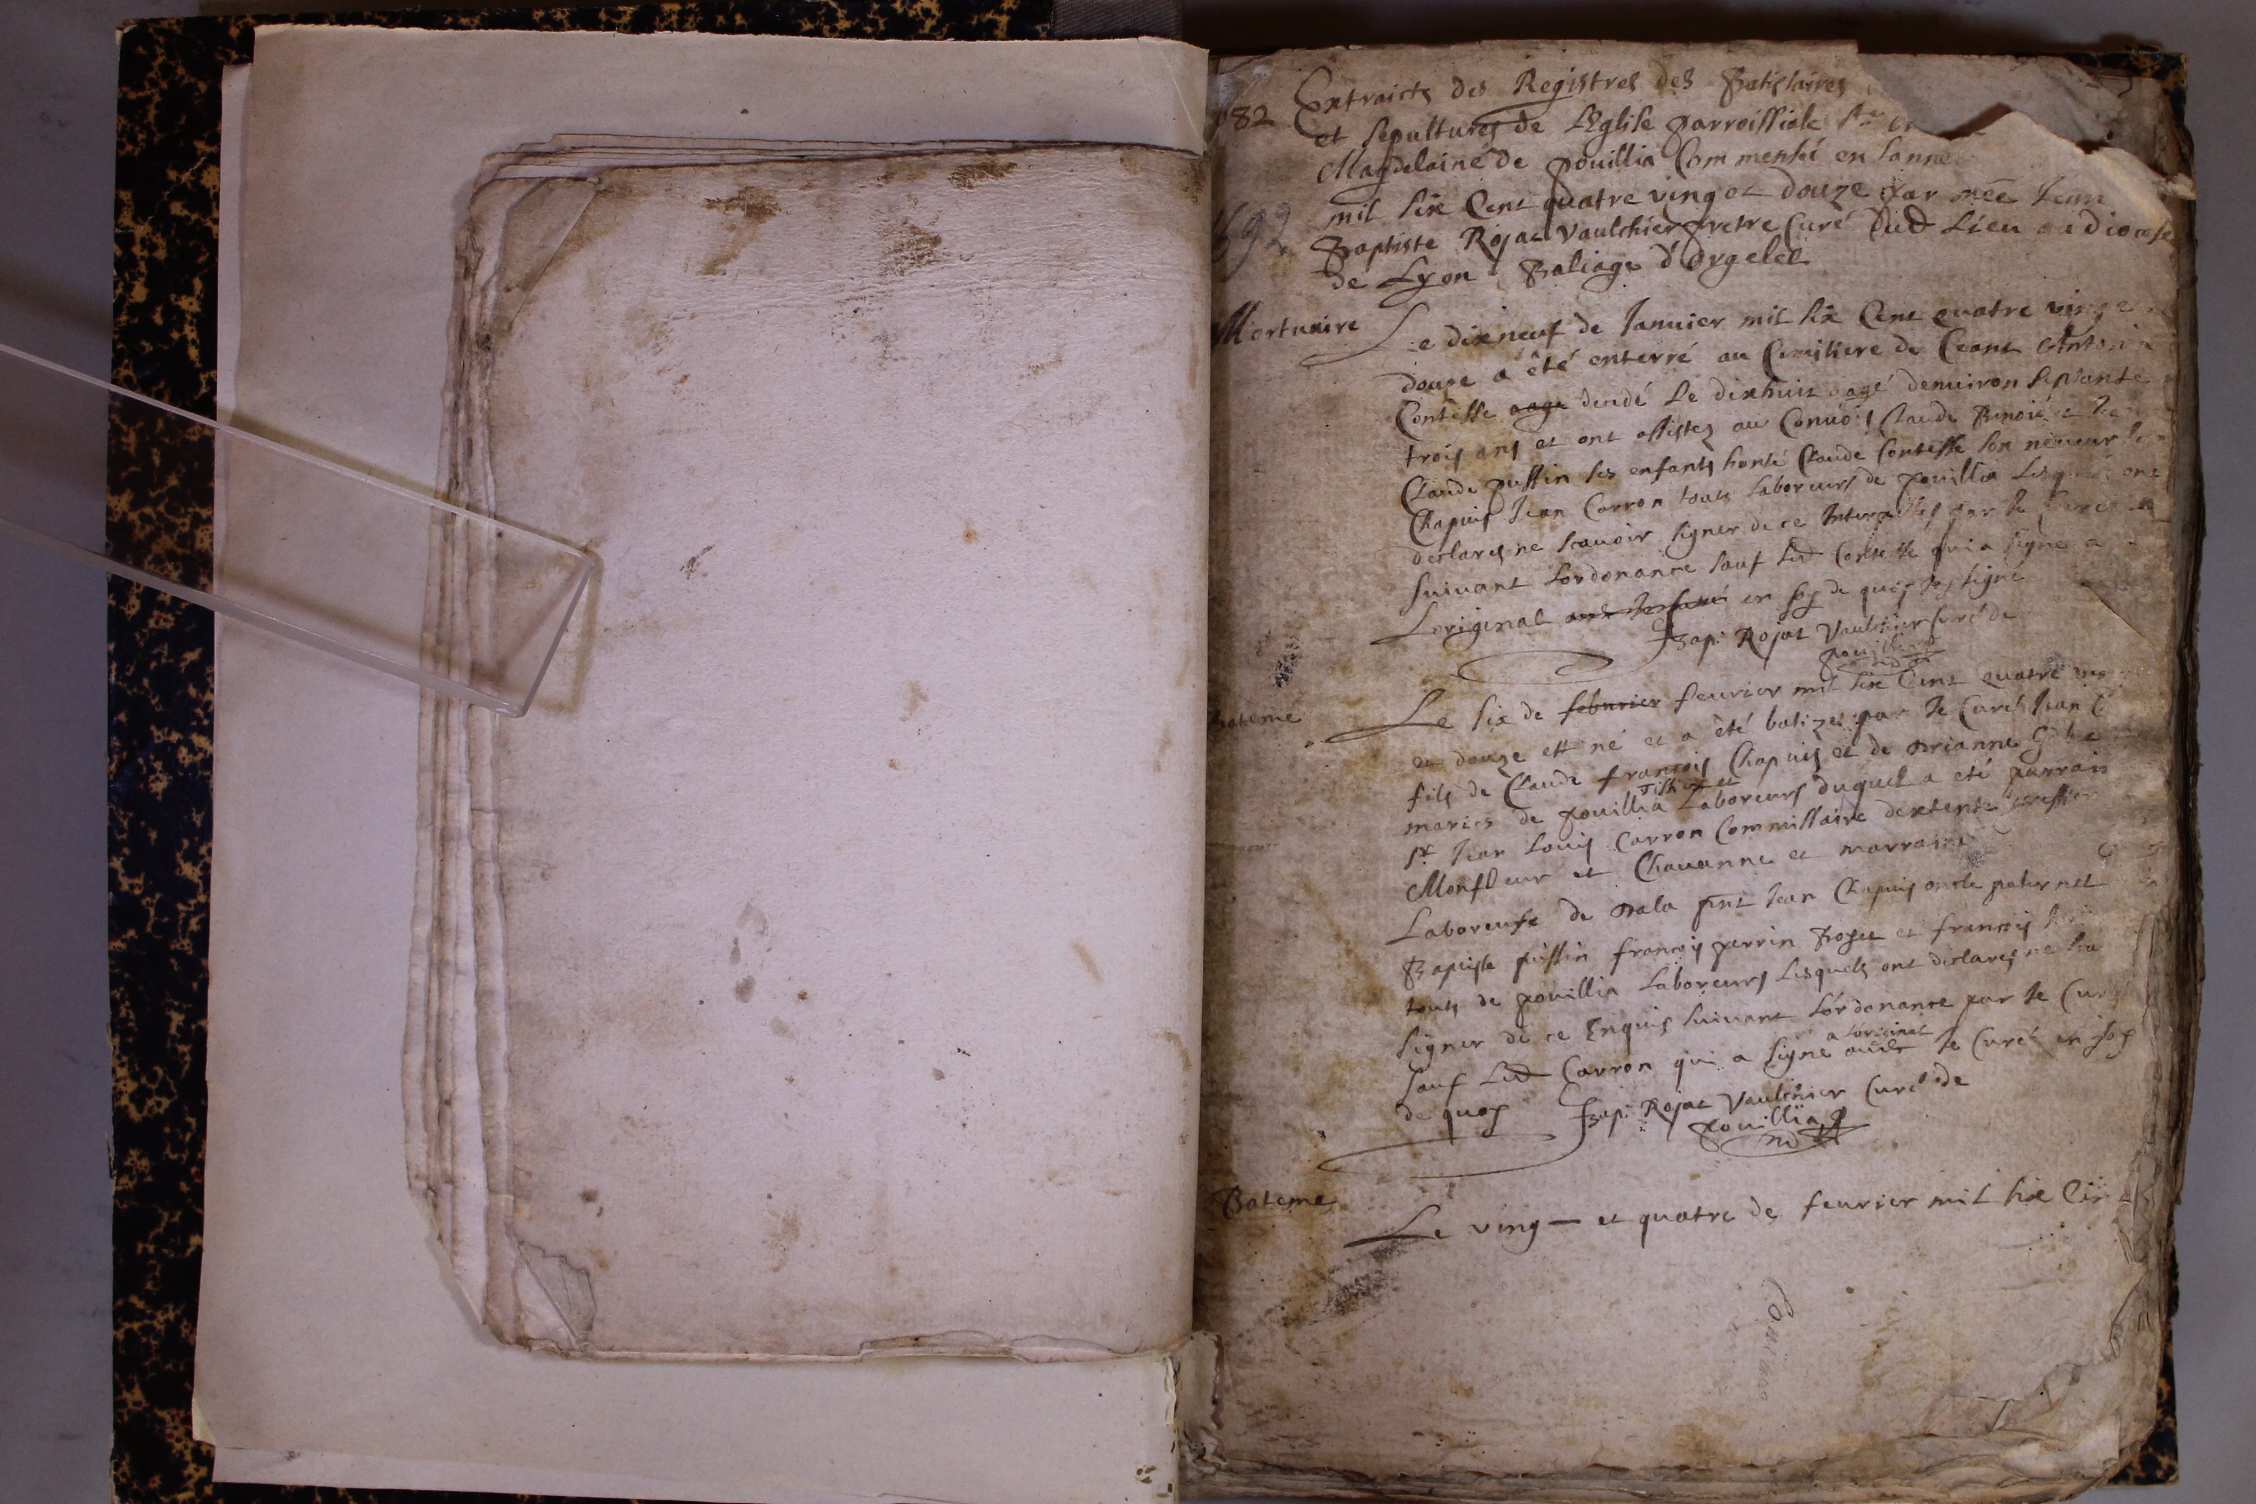 Extraicts des Registres des Batistaires
et sepultures de L'Eglise parroissiale Ste
Magdelaine de pouillia Commensé en Lanne
mil six Cent quatre vingt et douze par mée Jean
Baptiste Rojat Vaulchier pretre Curé dud Lieu au diocese
de Lyon Baliage d'orgelet
82
1692
Mortuaire
Le dixneuf de Januier mil six Cent quatre vingt
douze a été enterré au Cimitiere de Ceant Antoin
Contesse aage decedé Le dixhuit aagé denuiron septante
trois ans et ont assistez au Conuois Claude Benoist et
Claude pussin ses enfants honté Claude Contesse son nepueur
Chapuis Jean Carron touts laboreurs de pouillia Lesquels ont
declares ne scauoir signer de ce Interpellés par le Curé
suiuant Lordonance sauf led Contesse qui a signé a
Loriginal en foy de quoy Jay signé
Bap: Rojat Vaulchier Curé de
pouillia
Bateme
Le six de febvrier feurier mil six Cent quatre vin
et douze est né et a été batizes par le Curé Jean C
fils de Claude françois Chapuis et de
maries de pouillia Tissier et Laboreurs duquel a eté parrain
Sr Jean Louis Carron Commissaire dextente
Monfleur et Chauanne et marraine
Laboreuse de nala pnt Jean Chapuis oncle paternel
Baptiste pussin françois perrin Rojet et françois
touts de pouillia Laboreurs Lesquels ont declares ne sca
signer de ce Enquis suiuant Lordonance par le Curé
sauf Led Carron qui a signé a loriginal auec le Curé en foy
de quoy Bap: Rojat Vaulchier Curé de
pouillia
Bateme
Le ving - et quatre de feurier mil six Cen
Commun